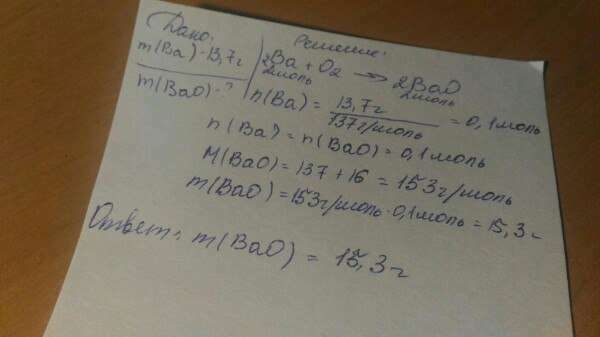 Дано:
m(Ba)-13,7г
m(BaO)-?
Решение:
2Ba + O2 → 2BaO
2моль 2моль
n(Ba) = 13,7г / 137г/моль = 0,1моль
n(Ba) = n(BaO) = 0,1моль
M(BaO) = 137 + 16 = 153г/моль
m(BaO) = 153г/моль · 0,1моль = 15,3г
Ответ: m(BaO) = 15,3г